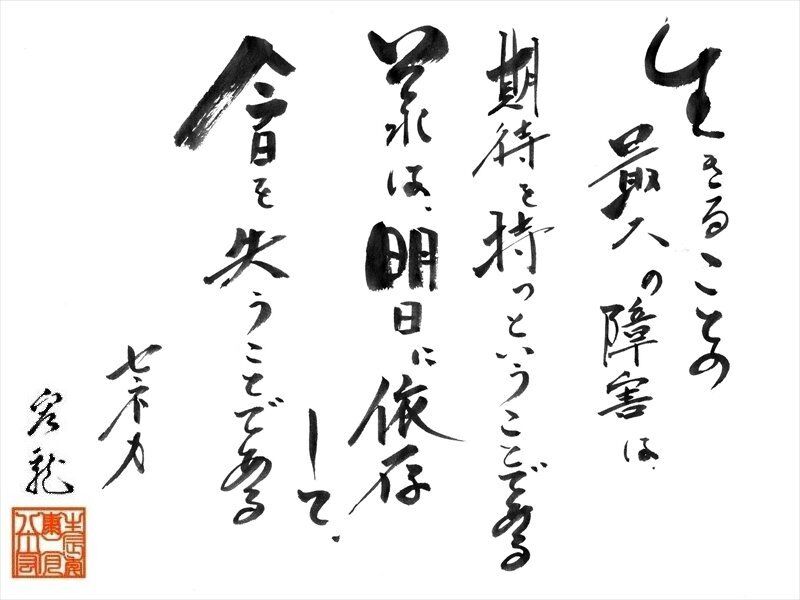 生きることの
最大の障害は、
期待を持つということである
それは、明日に依存
して、
今日を失うことである
セネカ